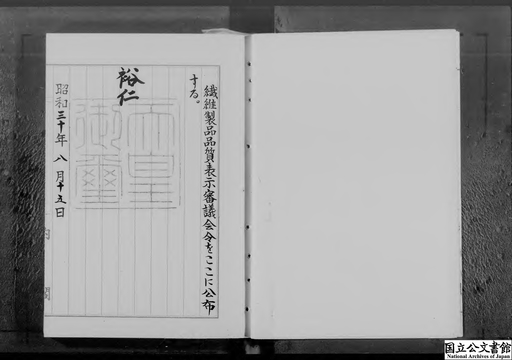 繊維製品品質表示審議会令をここに公布
する。
裕仁
天皇
御璽
昭和三十年八月十五日
内閣
国立公文書館
National Archives of Japan